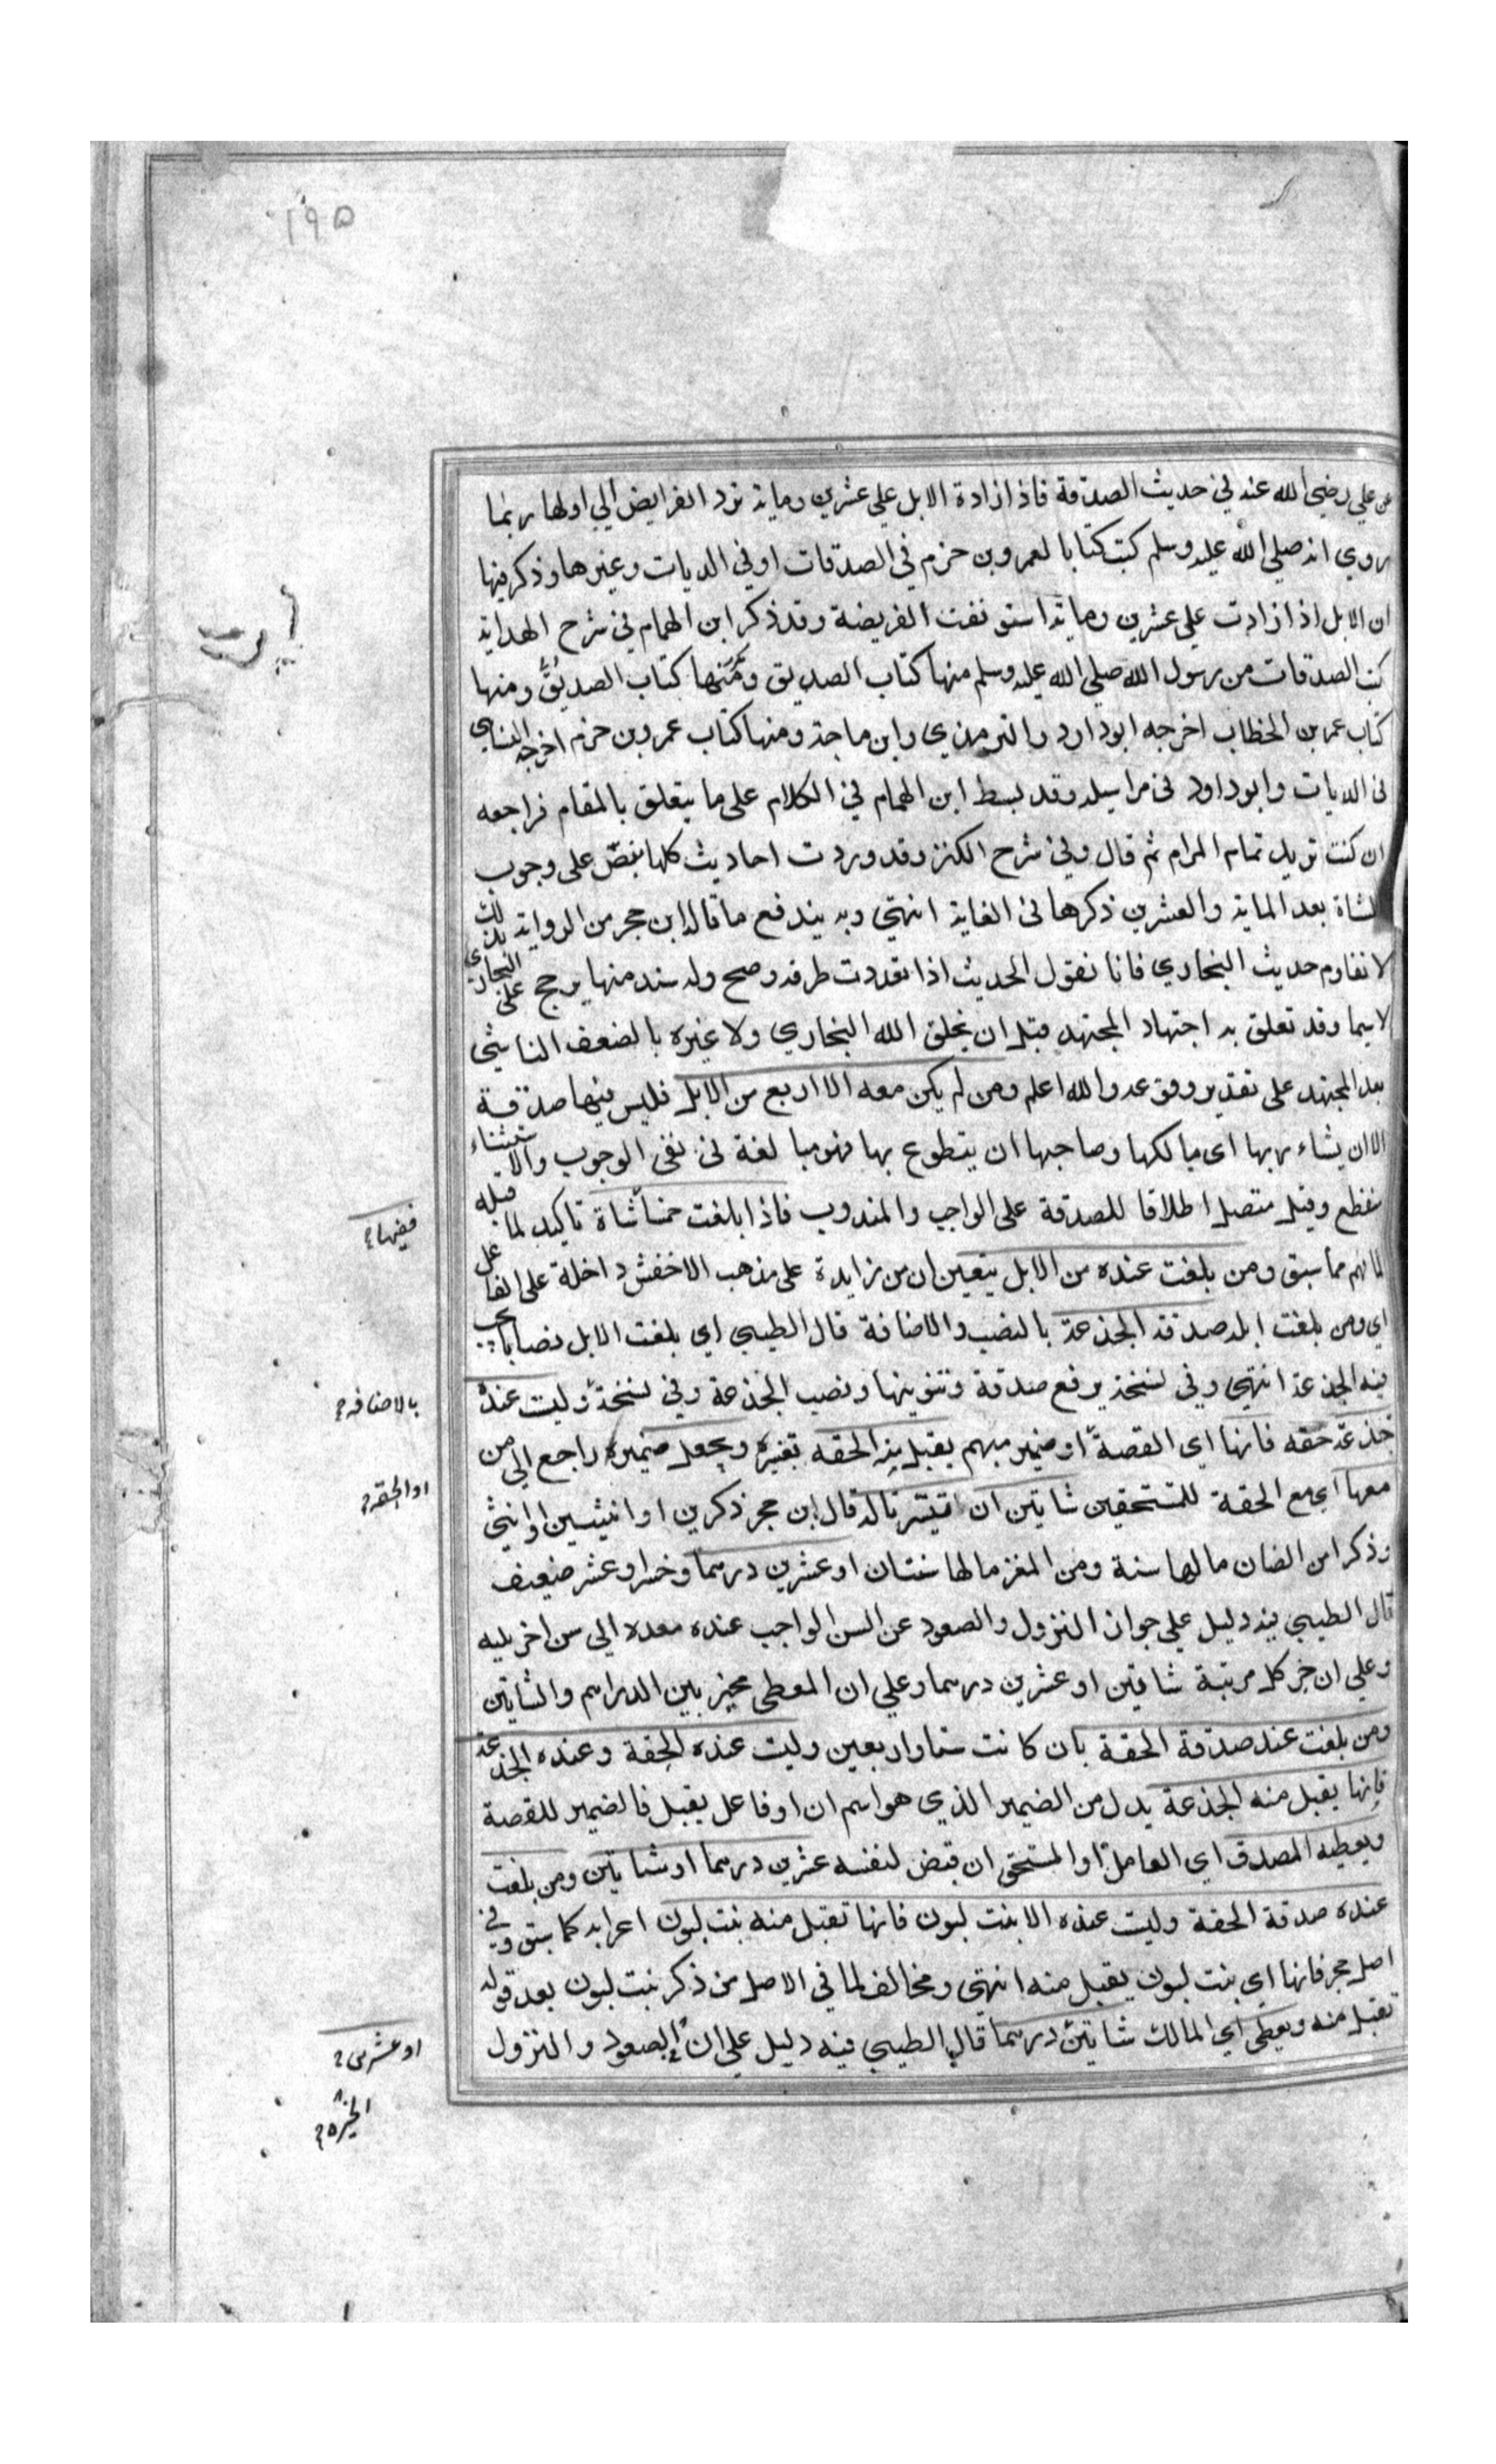 ١٩٥
عن علي رضي الله عنه في حديث الصدقة فاذا زادة الابل علي عشرين وماية ترد الفرايض الي اولها وبما
روي انه صلي الله عليه وسلم كتب كتابا لعمرو بن حزم في الصدقات او في الديات وغيرها وذكر فيها
ان الابل اذا زادت علي عشرين وماية استونفت الفريضة وقد ذكر ابن الهمام في شرح الهداية
كتب الصدقات من رسول الله صلي الله عليه وسلم منها كتاب الصديق ومنها كتاب الصديق ومنها
كتاب عمر بن الخطاب اخرجه ابو داود والترمذي وابن ماجة ومنها كتاب عمرو بن حزم اخرجه النساي
في الديات وابو داود في مراسيله وقد بسط ابن الهمام في الكلام على ما يتعلق بالمقام فراجعه
ان كنت تريد تمام المرام ثم قال وفي شرح الكنز وقد وردت احاديث كلها بنص على وجوب
الشاة بعد الماية والعشرين ذكرها في الغاية انتهي وبه يندفع ما قاله ابن حجر من الرواية بذلك
لا تقاوم حديث البخاري فانا نقول الحديث اذا تعددت طرقه وصح وله سند منها يرجح على البخاري
لا سيما وقد تعلق به اجتهاد المجتهد قبل ان يخلق الله البخاري ولا غيره بالضعف الناشي
بعد المجتهد على تقدير وقوعه والله اعلم ومن لم يكن معه الا اربع من الابل فليس فيها صدقة
الا ان يشاء ربها اى مالكها وصاحبها ان يتطوع بها فهو مبالغة في نفي الوجوب والاستثناء
منقطع وقيل متصل اطلاقا للصدقة على الواجب والمندوب فاذا بلغت خمسا شاة تاكيد لما قبله
ففيها
لما فهم مما سبق ومن بلغت عنده من الابل يتعين ان من زايدة على مذهب الاخفش داخلة على الفاعل
اى ومن بلغت ابله صدقة الجذعة بالنصب والاضافة قال الطيبي اي بلغت الابل نصابا يجب
فيه الجذعة انتهي وفي نسخة برفع صدقة وتنوينها ونصب الجذعة وفي نسخة وليست عنده
بالاضافة
جذعة حقه فانها اى القصة او ضمير مبهم يقبل منه الحقه تفسيره ويجعل ضميره راجع الى من
او الحقه
معها اي مع الحقة للمستحقين شاتين ان استيسرتا له قال ابن حجر ذكرين او انثيين او انثي
وذكر امن الضان مالها سنة ومن المغز مالها سنتان او عشرين درهما وخسرا وعشر ضعيف
قال الطيبي فيه دليل علي جواز النزول والصعود عن السن الواجب عنده معدلا الي سن اخر يليه
وعلي ان جبر كل مرتبة شاتين او عشرين درهما وعلي ان المعطى مخير بين الدراهم والشاتين
ومن بلغت عند صدقة الحقة بان كانت ستا واربعين وليست عنده الحقة وعنده الجذعة
فانها يقبل منه الجذعة بدل من الضمير الذي هو اسم ان او فاعل يقبل فالضمير للقصة
ويعطيه المصدق اي العامل او المستحق ان قبض لنفسه عشرين درهما او شاتين ومن بلغت
عنده صدقة الحقة وليست عنده الا بنت لبون فانها تقبل منه بنت لبون اعرابه كما سبق وفي
اصل حجر فانها اي بنت لبون يقبل منه انتهي ومخالف لما في الاصل من ذكر بنت لبون بعد قوله
تقبل منه ويعطى اي المالك شاتين درهما قال الطيبي فيه دليل علي ان الصعود والنزول
او عشرين